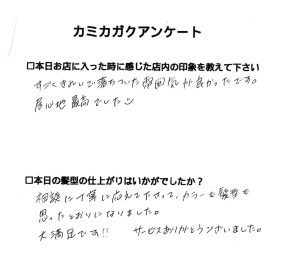 カミカガクアンケート
□本日お店に入った時に感じた店内の印象を教えて下さい
すごくきれいで落ちついた雰囲気が良かったです。
居心地最高でした
□本日の髪型の仕上がりはいかがでしたか？
相談に丁寧に応えて下さって、カラーも髪型も
思ったとおりになりました。
大満足です!! サービスありがとうございました。